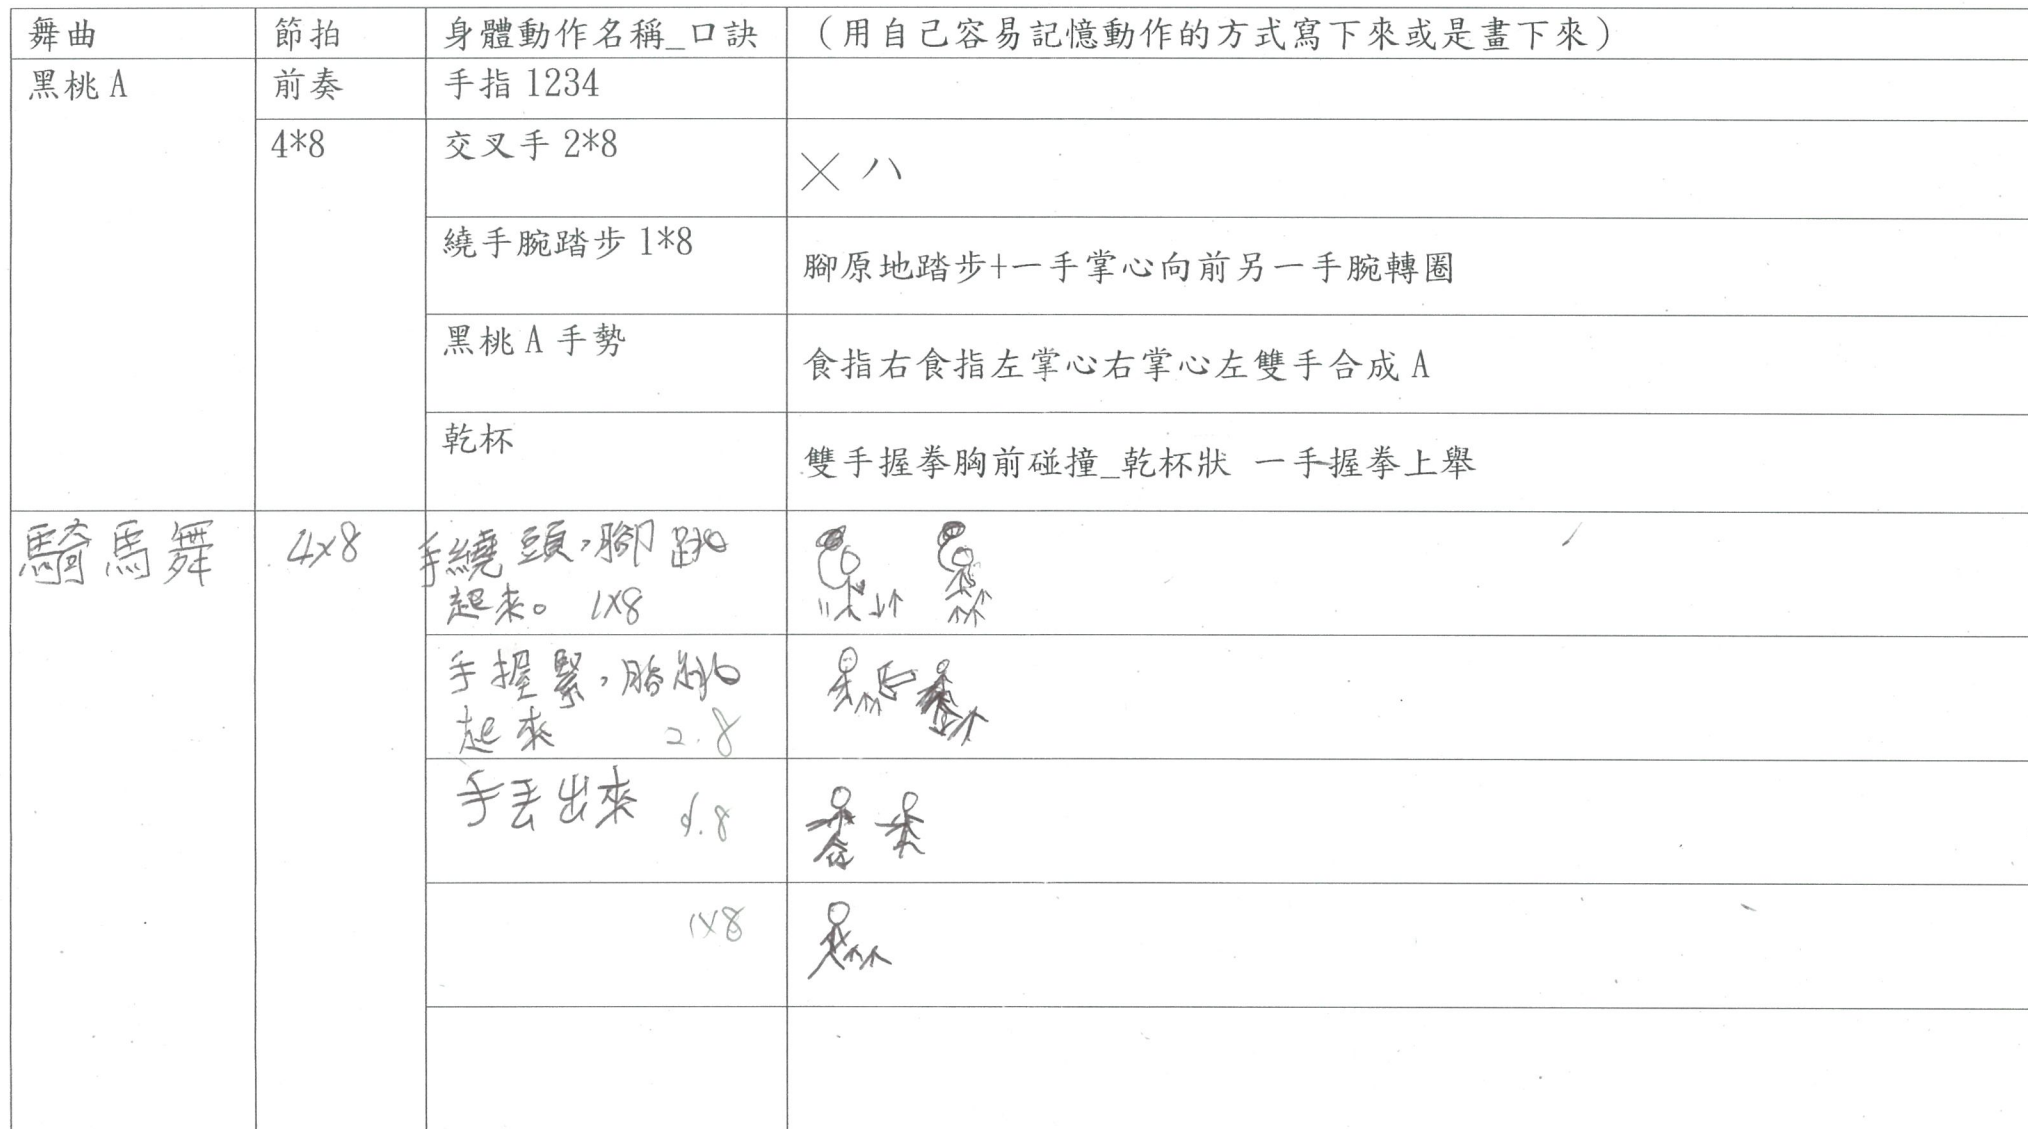 舞曲 節拍 身體動作名稱_口訣 （用自己容易記憶動作的方式寫下來或是畫下來）
黑桃 A 前奏 手指 1234
4*8 交叉手 2*8
╳ ㄟ
繞手腕踏步 1*8
腳原地踏步+一手掌心向前另一手腕轉圈
黑桃 A 手勢
食指右食指左掌心右掌心左雙手合成 A
乾杯
雙手握拳胸前碰撞_乾杯狀 一手握拳上舉
騎馬舞 4x8 手繞頭，腳跳
起來。 1x8
手握緊，腳跳
起來 2.8
手丟出來 .8
1x8